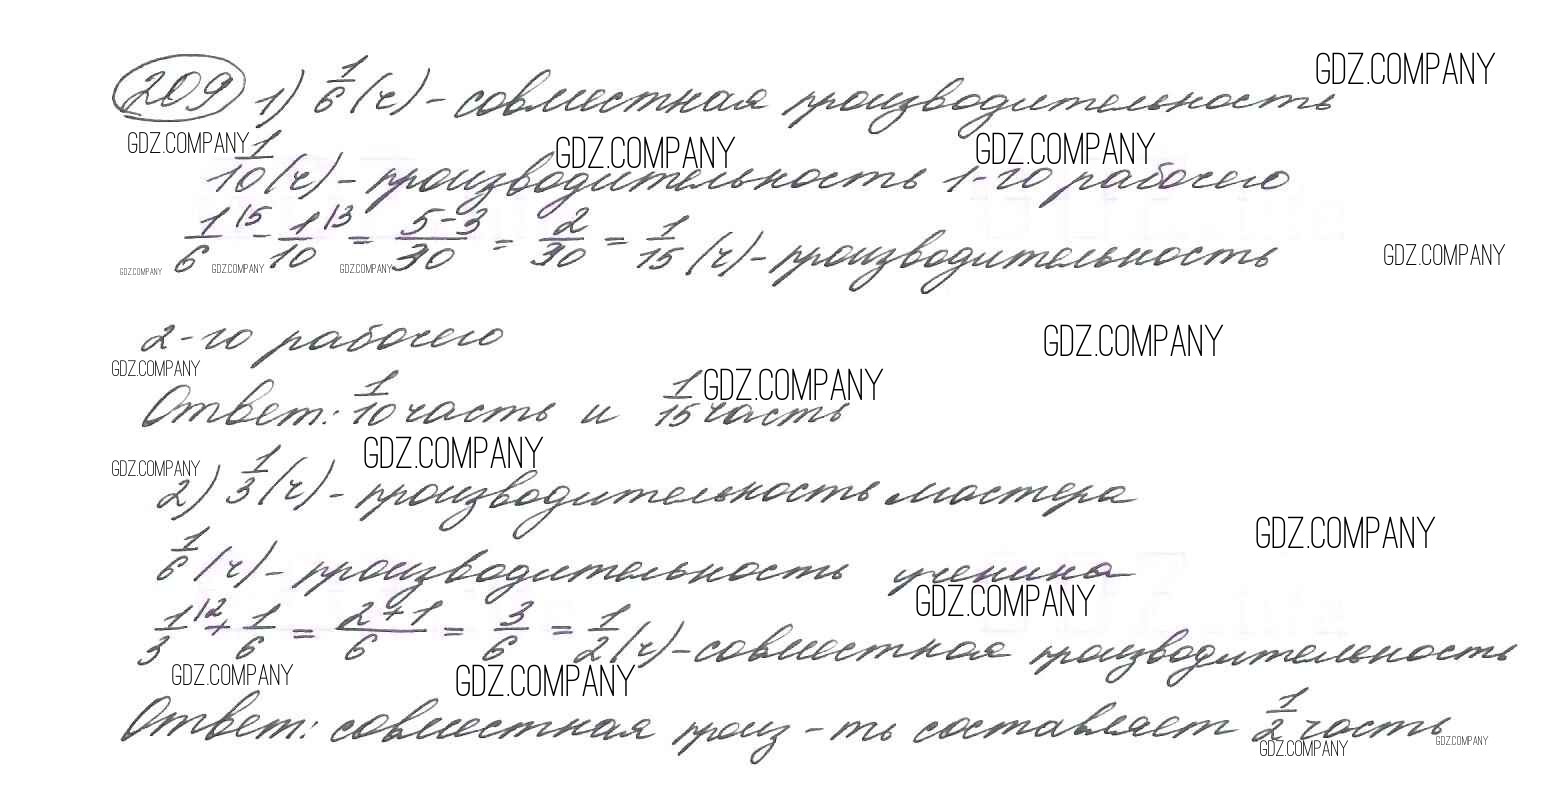 209 1) 1/6 (ч) - совместная производительность GDZ.COMPANY
GDZ.COMPANY GDZ.COMPANY GDZ.COMPANY
1/10 (ч) - производительность 1-го рабочего
1/6 |5 - 1/10 |3 = 5-3/30 = 2/30 = 1/15 (ч) - производительность GDZ.COMPANY
GDZ.COMPANY GDZ.COMPANY GDZ.COMPANY
2-го рабочего GDZ.COMPANY
GDZ.COMPANY GDZ.COMPANY
Ответ: 1/10 часть и 1/15 часть
GDZ.COMPANY GDZ.COMPANY
2) 1/3 (ч) - производительность мастера
GDZ.COMPANY
1/6 (ч) - производительность ученика
GDZ.COMPANY
1/3 |2 + 1/6 = 2+1/6 = 3/6 = 1/2 (ч) - совместная производительность
GDZ.COMPANY GDZ.COMPANY
Ответ: совместная произ-ть составляет 1/2 часть
GDZ.COMPANY GDZ.COMPANY